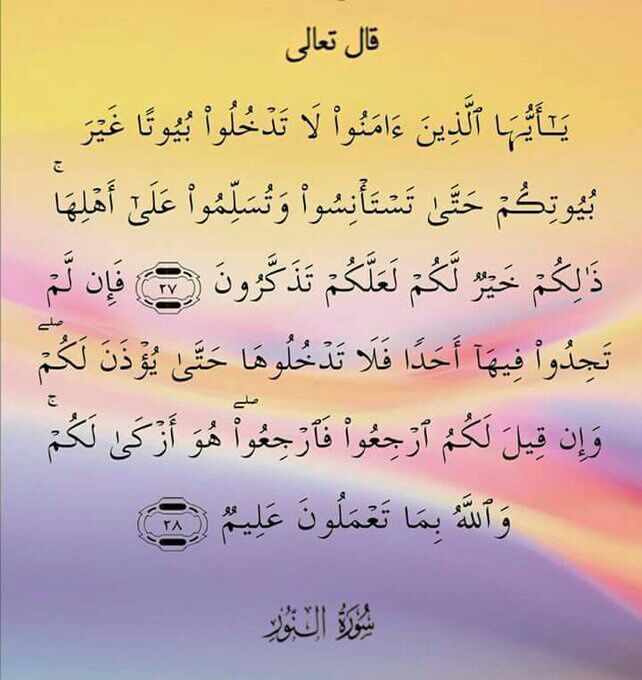 قال تعالى
يَـٰٓأَيُّهَا ٱلَّذِينَ ءَامَنُوا۟ لَا تَدْخُلُوا۟ بُيُوتًا غَيْرَ
بُيُوتِكُمْ حَتَّىٰ تَسْتَأْنِسُوا۟ وَتُسَلِّمُوا۟ عَلَىٰٓ أَهْلِهَا ۚ
ذَٰلِكُمْ خَيْرٌ لَّكُمْ لَعَلَّكُمْ تَذَكَّرُونَ ٢٧ فَإِن لَّمْ
تَجِدُوا۟ فِيهَآ أَحَدًا فَلَا تَدْخُلُوهَا حَتَّىٰ يُؤْذَنَ لَكُمْ ۖ
وَإِن قِيلَ لَكُمُ ٱرْجِعُوا۟ فَٱرْجِعُوا۟ ۖ هُوَ أَزْكَىٰ لَكُمْ ۚ
وَٱللَّهُ بِمَا تَعْمَلُونَ عَلِيمٌ ٢٨
سُورَةُ النُّورِ